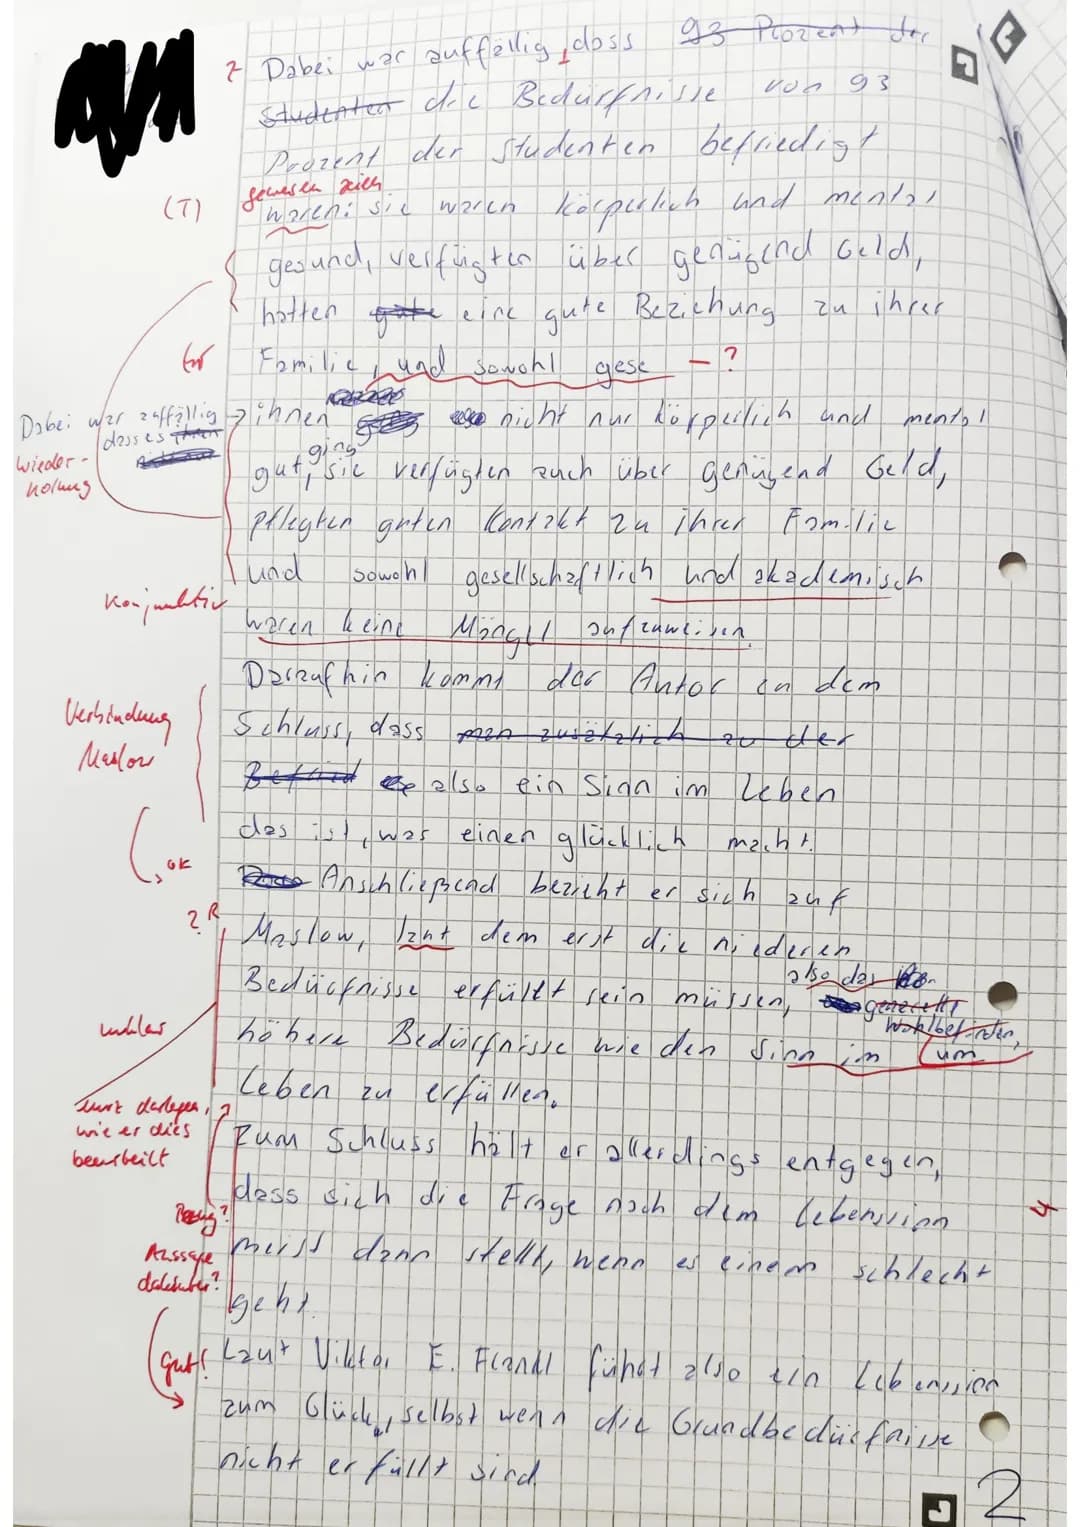 Z Dabei war auffällig, dass 93 Prozent der
Studenten die Bedürfnisse von 93
Prozent der Studenten befriedigt
gewesen seien
(T) waren: sie waren körperlich und mental
gesund, verfügten über genügend Geld,
hatten gute eine gute Beziehung zu ihrer
Familie, und sowohl gese — ?
Dabei war auffällig
dass es ihnen
Wieder-
holung
ihnen nicht nur körperlich und mental
ging
gut, sie verfügten auch über genügend Geld,
pflegten guten Kontakt zu ihrer Familie
und sowohl gesellschaftlich und akademisch
Konjunktiv
waren keine Mängel aufzuweisen.
Daraufhin kommt der Autor zu dem
Verbindung
Maslow
Schluss, dass man zusätzlich zu der
Befried also ein Sinn im Leben
das ist, was einen glücklich macht.
ok
Anschließend bezieht er sich auf
? R
Maslow, laut dem erst die niederen
also das
Bedürfnisse erfüllt sein müssen, generelle
Wohlbefinden,
höhere Bedürfnisse wie den Sinn im um
Leben zu erfüllen.
kurz darlegen,
wie er dies
beurteilt
Zum Schluss hält er allerdings entgegen,
dass sich die Frage nach dem Lebenssinn
Bezug?
4
Aussage
dahinter?
meist dann stellt, wenn es einem schlecht
geht.
gut!
Laut Viktor E. Frankl führt also ein Lebenssinn
zum Glück, selbst wenn die Grundbedürfnisse
nicht erfüllt sind.
2